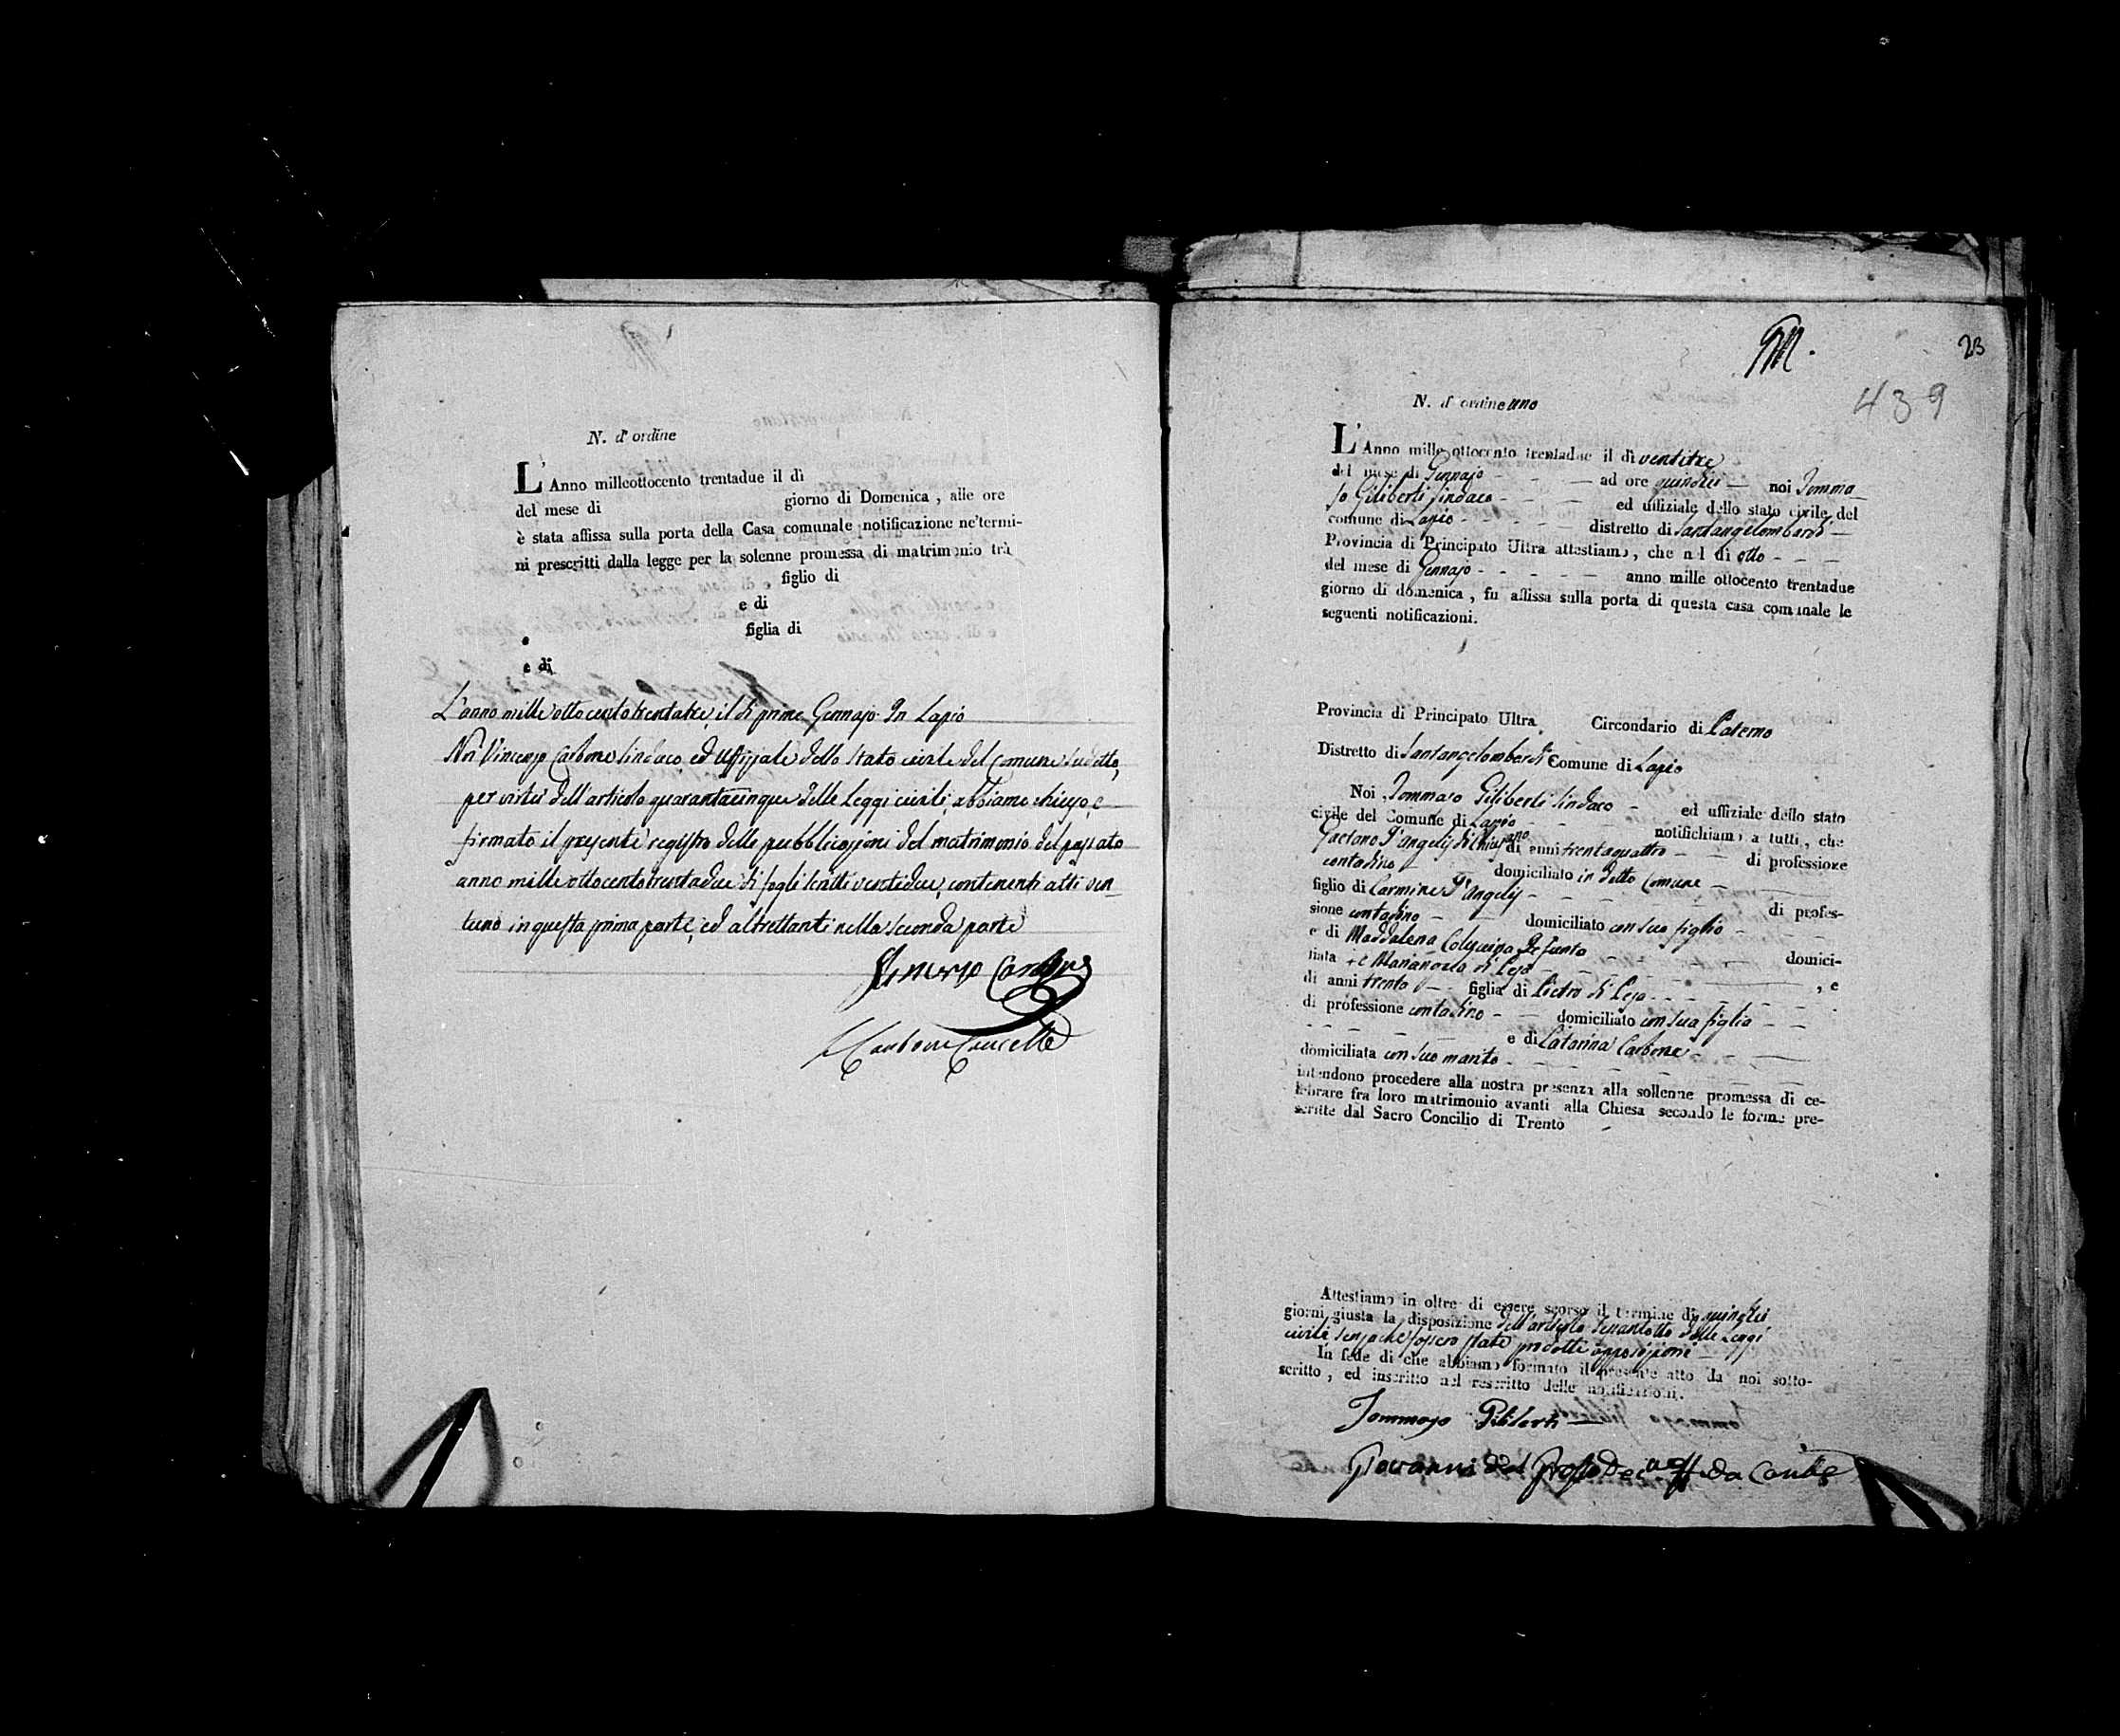 N. d'ordine
L'Anno milleottocento trentadue il dì
del mese di giorno di Domenica, alle ore
è stata affissa sulla porta della Casa comunale notificazione ne'termi-
ni prescritti dalla legge per la solenne promessa di matrimonio trà
figlio di
e di
figlia di
e di
L'anno mille ottocento trentatre, il di primo Gennajo In Lapio
Noi Vincenzo Carbone Sindaco ed Uffiziale dello Stato civile del Comune sudetto,
per virtù dell'articolo quarantacinque delle Leggi civili, abbiamo chiuso, e
firmato il presente registro delle pubblicazioni del matrimonio del passato
anno mille ottocento trentadue di fogli scritti ventidue, contenenti atti ven-
tuno in questa prima parte, ed altrettanti nella seconda parte
Vincenzo Carbone
Carbone
M.
23
439
N. d'ordine uno
L'Anno mille ottocento trentadue il dì ventitre
del mese di Gennajo - - - ad ore quindici — noi Tomma-
so Giliberti Sindaco - - - ed uffiziale dello stato civile del
comune di Lapio - - - - distretto di Santangelombardi —
Provincia di Principato Ultra attestiamo, che nel dì otto - - -
del mese di Gennajo - - - - anno mille ottocento trentadue
giorno di domenica, fu affissa sulla porta di questa casa comunale le
seguenti notificazioni.
Provincia di Principato Ultra Circondario di Paterno
Distretto di Santangelombardi Comune di Lapio
Noi Tommaso Giliberti Sindaco - ed uffiziale dello stato
civile del Comune di Lapio - - - notifichiamo a tutti, che
Gaetano D'angelis di Chiusano di anni trentaquattro - - di professione
contadino domiciliato in detto Comune -
figlio di Carmine D'Angelis - - - - di profes-
sione contadino - - domiciliato con suo figlio - - -
e di Maddalena - - domici-
liata + e di Peso - - - , e
di anni trenta - - figlia di Pietro di Peso - - -
di professione contadino - - domiciliato con sua figlia - -
- - - - e di Catarina Carbone - - -
domiciliata con suo marito - - - -
intendono procedere alla nostra presenza alla sollenne promessa di ce-
lebrare fra loro matrimonio avanti alla Chiesa secondo le forme pre-
scritte dal Sacro Concilio di Trento
Attestiamo in oltre di essere scorso il termine di quindici
giorni giusta la disposizione dell'articolo sessantotto delle Leggi
civili senzache fossero state prodotte opposizioni —
In fede di che abbiamo formato il presente atto da noi sotto-
scritto, ed inscritto nel rescritto delle notificazioni.
Tommaso Giliberti
Giovanni del Grosso